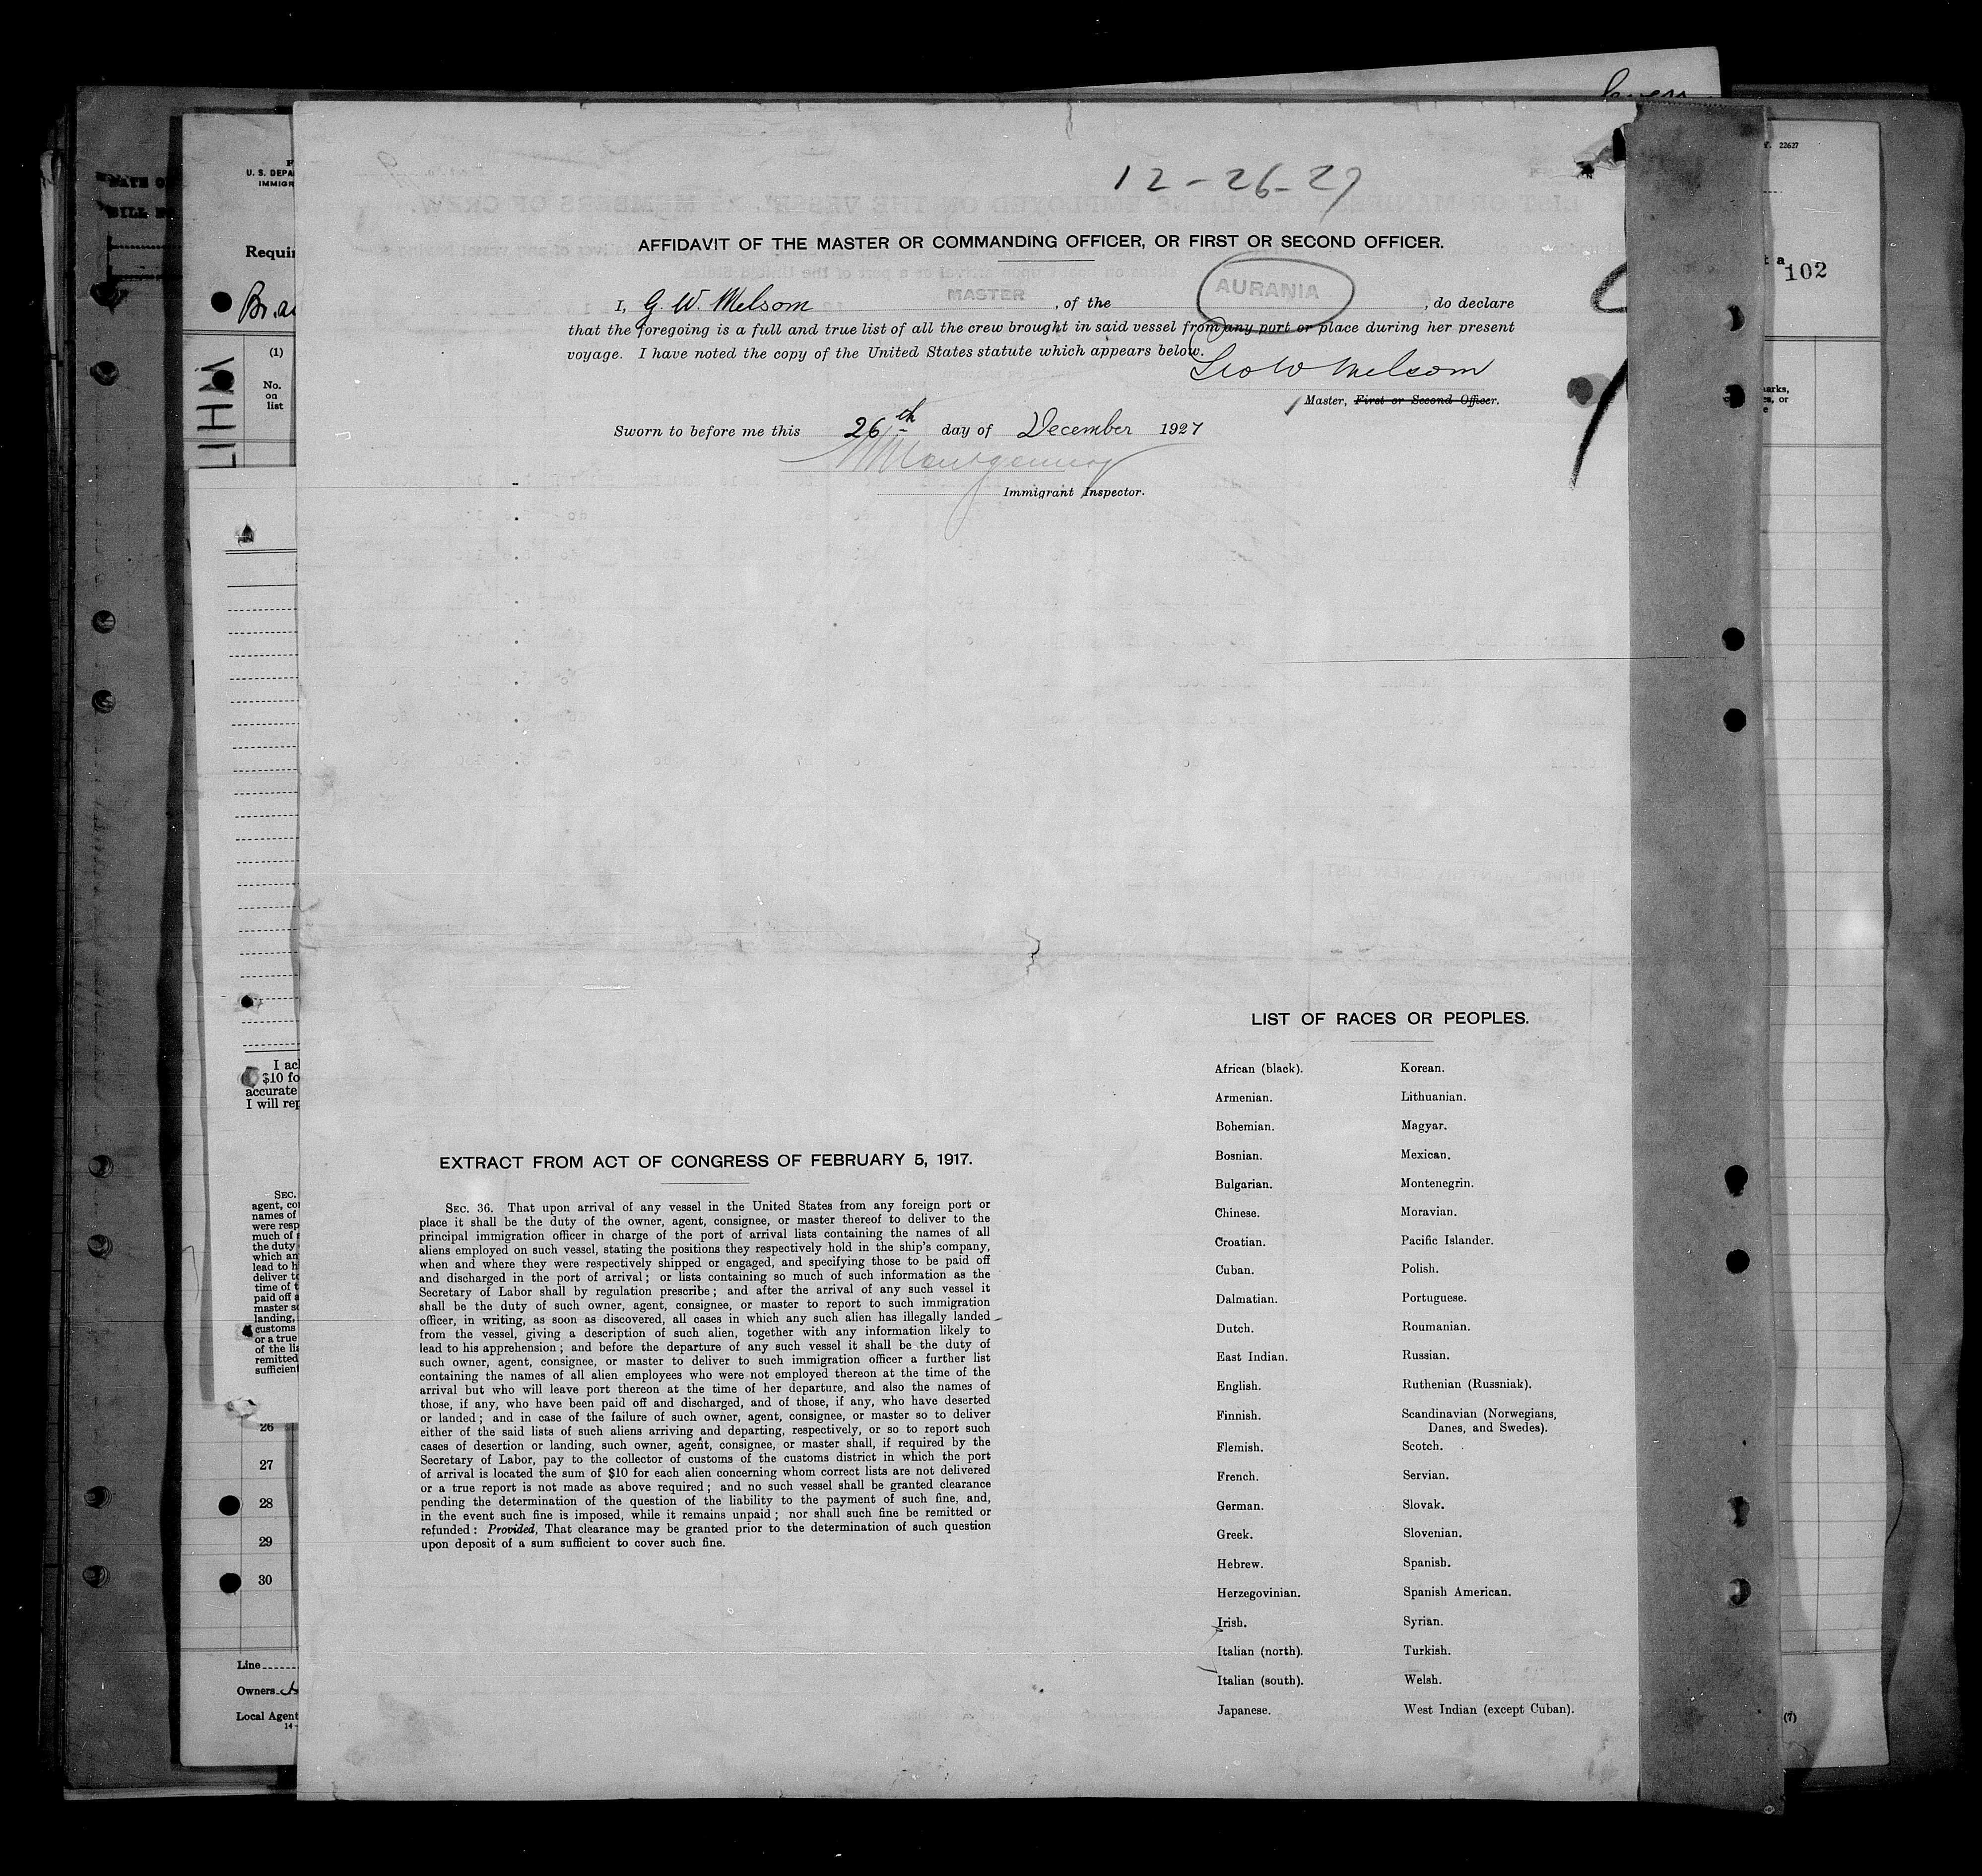 12-26-27
AFFIDAVIT OF THE MASTER OR COMMANDING OFFICER, OR FIRST OR SECOND OFFICER.
I, G. W. Melsom MASTER, of the AURANIA, do declare
that the foregoing is a full and true list of all the crew brought in said vessel from any port or place during her present
voyage. I have noted the copy of the United States statute which appears below.
Geo W Melsom
Master, First or Second Officer.
Sworn to before me this 26th day of December 1927
Montgomery
Immigrant Inspector.
LIST OF RACES OR PEOPLES.
African (black). Korean.
Armenian. Lithuanian.
Bohemian. Magyar.
Bosnian. Mexican.
Bulgarian. Montenegrin.
Chinese. Moravian.
Croatian. Pacific Islander.
Cuban. Polish.
Dalmatian. Portuguese.
Dutch. Roumanian.
East Indian. Russian.
English. Ruthenian (Russniak).
Finnish. Scandinavian (Norwegians,
Danes, and Swedes).
Flemish. Scotch.
French. Servian.
German. Slovak.
Greek. Slovenian.
Hebrew. Spanish.
Herzegovinian. Spanish American.
Irish. Syrian.
Italian (north). Turkish.
Italian (south). Welsh.
Japanese. West Indian (except Cuban).
EXTRACT FROM ACT OF CONGRESS OF FEBRUARY 5, 1917.
SEC. 36. That upon arrival of any vessel in the United States from any foreign port or
place it shall be the duty of the owner, agent, consignee, or master thereof to deliver to the
principal immigration officer in charge of the port of arrival lists containing the names of all
aliens employed on such vessel, stating the positions they respectively hold in the ship's company,
when and where they were respectively shipped or engaged, and specifying those to be paid off
and discharged in the port of arrival; or lists containing so much of such information as the
Secretary of Labor shall by regulation prescribe; and after the arrival of any such vessel it
shall be the duty of such owner, agent, consignee, or master to report to such immigration
officer, in writing, as soon as discovered, all cases in which any such alien has illegally landed
from the vessel, giving a description of such alien, together with any information likely to
lead to his apprehension; and before the departure of any such vessel it shall be the duty of
such owner, agent, consignee, or master to deliver to such immigration officer a further list
containing the names of all alien employees who were not employed thereon at the time of the
arrival but who will leave port thereon at the time of her departure, and also the names of
those, if any, who have been paid off and discharged, and of those, if any, who have deserted
or landed; and in case of the failure of such owner, agent, consignee, or master so to deliver
either of the said lists of such aliens arriving and departing, respectively, or so to report such
cases of desertion or landing, such owner, agent, consignee, or master shall, if required by the
Secretary of Labor, pay to the collector of customs of the customs district in which the port
of arrival is located the sum of $10 for each alien concerning whom correct lists are not delivered
or a true report is not made as above required; and no such vessel shall be granted clearance
pending the determination of the question of the liability to the payment of such fine, and,
in the event such fine is imposed, while it remains unpaid; nor shall such fine be remitted or
refunded: Provided, That clearance may be granted prior to the determination of such question
upon deposit of a sum sufficient to cover such fine.
(1)
No.
on
list
26
27
28
29
30
Line
Owners
Local Agent
102
22627
(7)